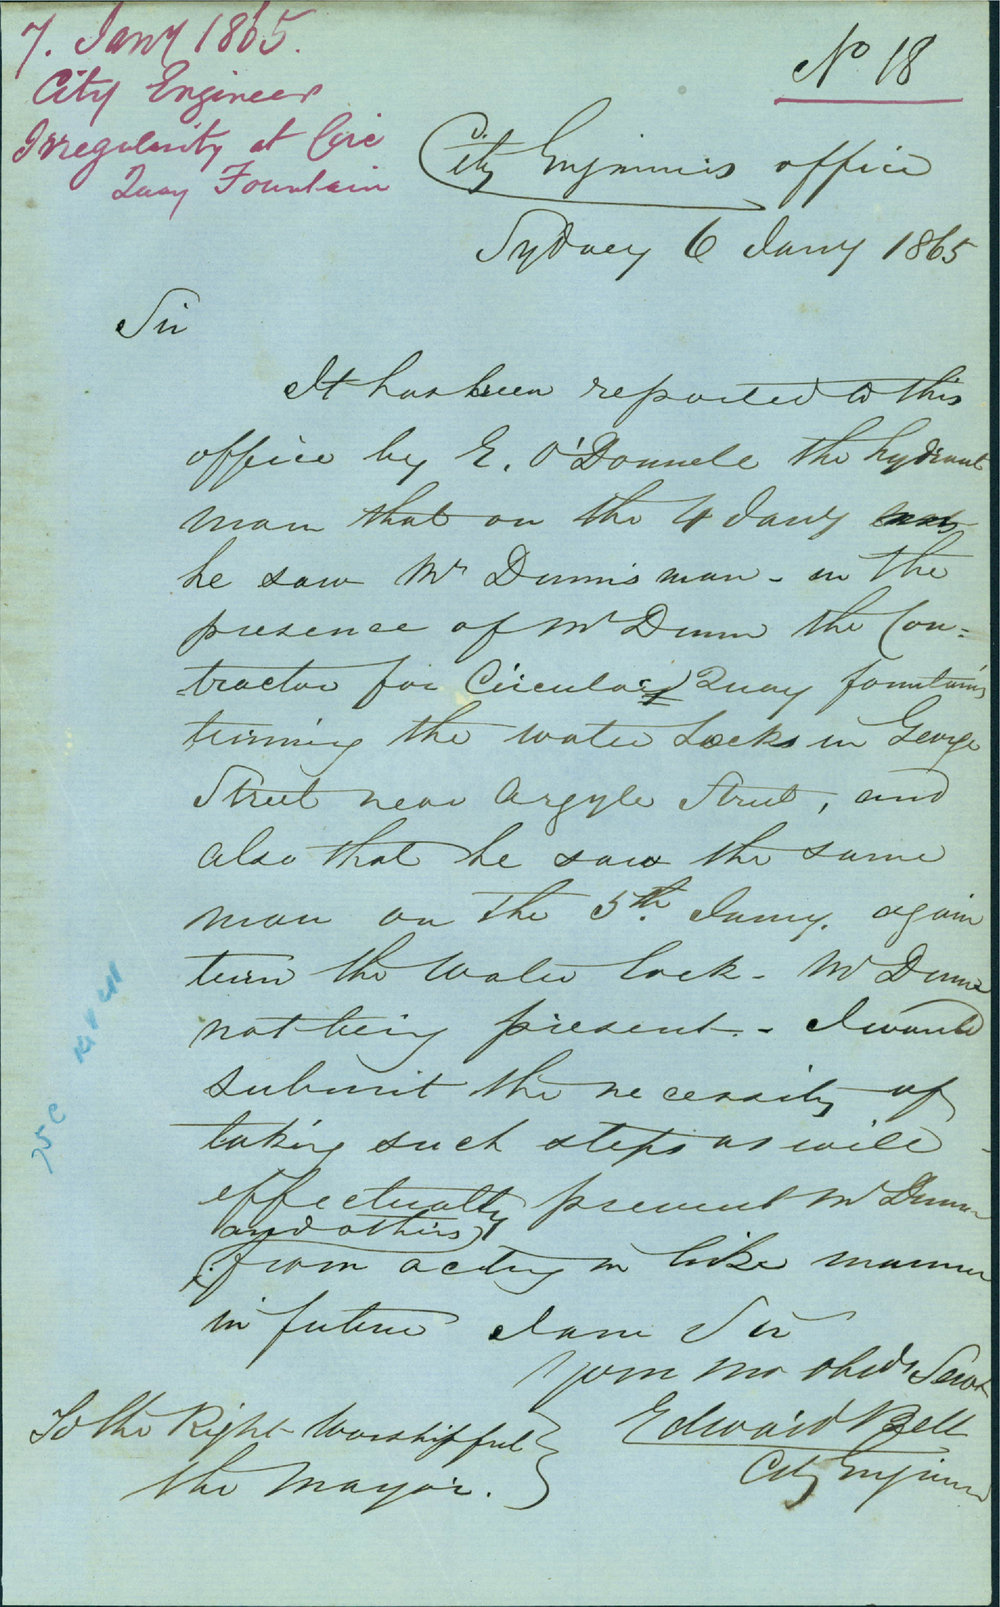 7. Jany 1865.
City Engineer
Irregularity at Circ
Quay Fountain
No 18
City Engineers office
Sydney 6 Jany 1865
Sir
It has been reported to this
office by E. O'Donnele the hydrant
man that on the 4 Jany
he saw Mr Dunn's man - in the
presence of Mr Dunn the Con=
tractor for Circular Quay fountains
turning the water Locks in George
Street near Argyle Street, and
also that he saw the same
man on the 5th Jany. again
turn the Water lock - Mr Dunn
not being present. - I would
submit the necessity of
taking such steps as will
effectually prevent Mr Dunn
and others
from acting in like manner
in future I am Sir
Your Mo Obedt Servt
Edward Bell
City Engineer
To the Right Worshipful
the Mayor.